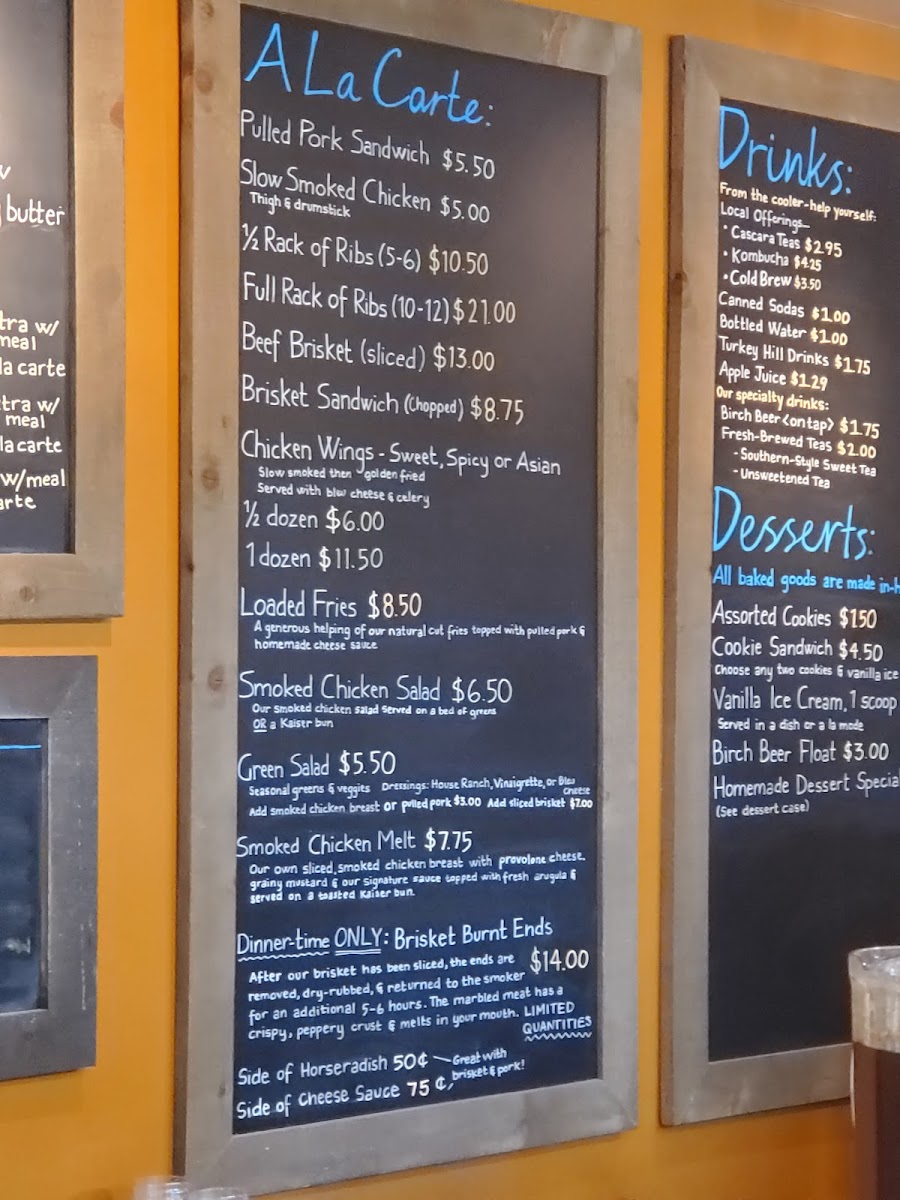 butter
meal
la carte
meal
la carte
w/meal
A La Carte:
Pulled Pork Sandwich $5.50
Slow Smoked Chicken $5.00
Thigh & drumstick
½ Rack of Ribs (5-6) $10.50
Full Rack of Ribs (10-12) $21.00
Beef Brisket (sliced) $13.00
Brisket Sandwich (Chopped) $8.75
Chicken Wings - Sweet, Spicy or Asian
Slow smoked then golden fried
Served with blue cheese & celery
½ dozen $6.00
1 dozen $11.50
Loaded Fries $8.50
A generous helping of our natural cut fries topped with pulled pork &
homemade cheese sauce
Smoked Chicken Salad $6.50
Our smoked chicken salad served on a bed of greens
OR a Kaiser bun
Green Salad $5.50
Seasonal greens & veggies Dressings: House Ranch, Vinaigrette, or Bleu
Cheese
Add smoked chicken breast or pulled pork $3.00 Add sliced brisket $7.00
Smoked Chicken Melt $7.75
Our own sliced, smoked chicken breast with provolone cheese,
grainy mustard & our signature sauce topped with fresh arugula &
served on a toasted Kaiser bun.
Dinner-time ONLY: Brisket Burnt Ends
$14.00
After our brisket has been sliced, the ends are
removed, dry-rubbed, & returned to the smoker
for an additional 5-6 hours. The marbled meat has a
crispy, peppery crust & melts in your mouth. LIMITED
QUANTITIES
Side of Horseradish 50¢
Side of Cheese Sauce 75¢
Great with
brisket & pork!
Drinks:
From the cooler-help yourself:
Local Offerings—
• Cascara Teas $2.95
• Kombucha $4.25
• Cold Brew $3.50
Canned Sodas $1.00
Bottled Water $1.00
Turkey Hill Drinks $1.75
Apple Juice $1.29
Our specialty drinks:
Birch Beer <on tap> $1.75
Fresh-Brewed Teas $2.00
- Southern-Style Sweet Tea
- Unsweetened Tea
Desserts:
All baked goods are made in-h
Assorted Cookies $1.50
Cookie Sandwich $4.50
Choose any two cookies & vanilla ice
Vanilla Ice Cream, 1 scoop
Served in a dish or a la mode
Birch Beer Float $3.00
Homemade Dessert Special
(See dessert case)